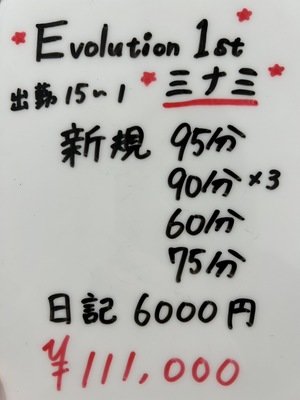 Evolution 1st
出勤 15~1 三ナ三
新規 95分
90分×3
60分
75分
日記 6000円
¥111,000